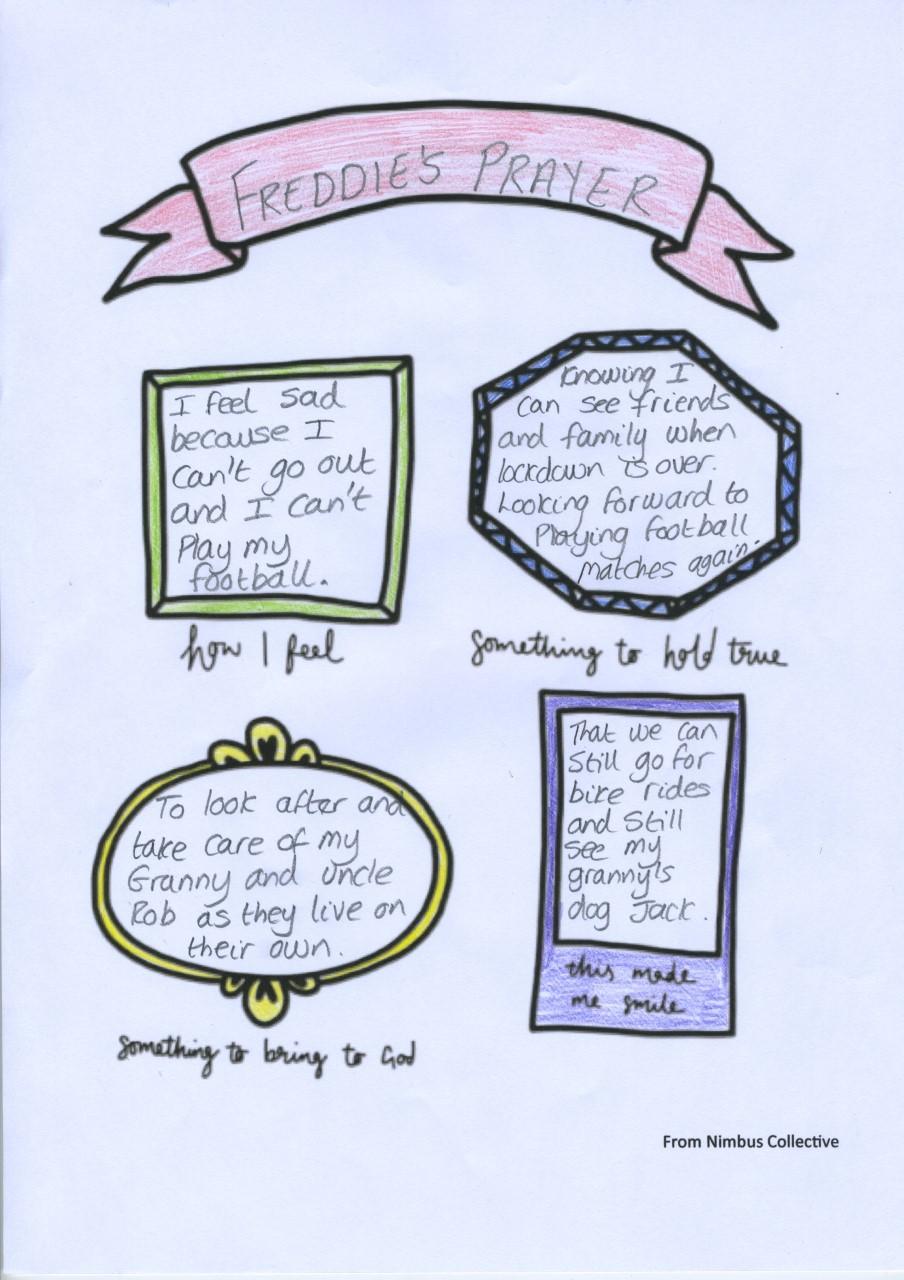 FREDDIE'S PRAYER
I feel sad
because I
can't go out
and I can't
Play my
football.
how I feel
Knowing I
can see friends
and family when
lockdown is over.
Looking forward to
Playing football
matches again.
something to hold true
To look after and
take care of my
Granny and Uncle
Rob as they live on
their own.
something to bring to God
That we can
Still go for
bike rides
and Still
see my
granny's
dog Jack.
this made
me smile
From Nimbus Collective